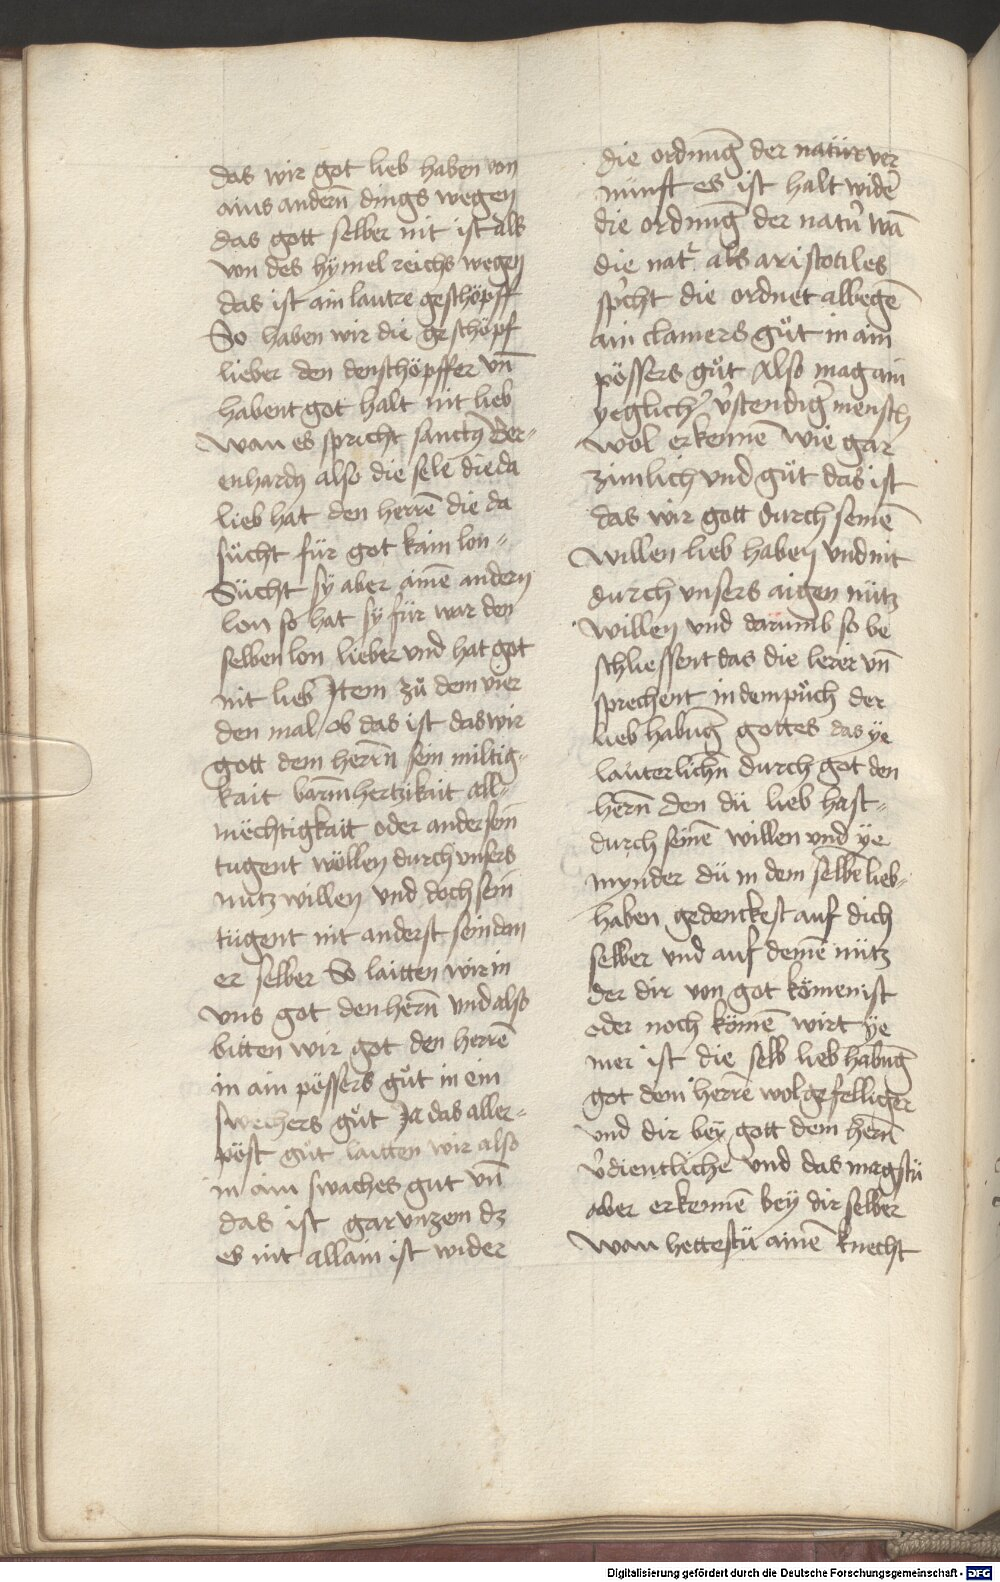 das wir got lieb haben von
ains andern̄ dings wegen
das gott selber nit ist als
von des hÿmel reichs wegen
das ist ain lautre geschöpff
So haben wir die geschöpf
lieber den den schöpffer vn̄
habent got halt nit lieb
wan es spricht sanctꝰ Ber⸗
enhardꝰ also die sele die da
lieb hat den herrē die da
sůcht für got kain lon ⸗
Sücht sÿ aber ainē andern
lon so hat sÿ für war den
selben lon lieber vnd hat got
nit lieb Jtem zů dem vier
den mal / ob das ist das wir
gott dem herrn̄ sein miltig⸗
kait barm̄hertzikait all⸗
mëchtigkait oder ander sein
tugent wöllen durch vnsers
nutz willen vnd doch sein
tügent nit anderst sein dan
er selber So laitten wir in
vns got den hern̄ vnd also
bitten wir got den herrē
in ain pössers gůt in ein
swechers gůt Ja das aller⸗
pöst gůt laitten wir also
in ain swaches gut vn̄
das ist gar vnzem dz
es nit allain ist wider
die ordnūg der natür ver
nunft es ist halt widē
die ordnūg der natur̄ wā
die natr̄ als aristotiles
spricht die ordnet albegē
ain clainers gůt in ain
pössers gůt Also mag ain
yeglichʼ vʼstendigʼ mensch
wol erkennē wie gar
zimlich vnd gůt das ist
das wir gott durch seinē
willen lieb haben vnd nit
durch vnsers aigen nütz
willen vnd darumb so be
schliessent das die lerer vn̄
sprechent in dem půch der
lieb habūg gottes das ÿe
lauterlichn̄ durch got den
hern̄ den dü lieb hast ⸗
durch seinē willen vnd ÿe
mynder dü in dem selbē lieb⸗
haben gedenckest auf dich
selber vnd auf deinē nütz
der dir von got kömen ist
oder noch kömē wirt ÿe
mer ist die selb lieb habūg
got dem herrē wolgefelliger
vnd dir beÿ gott dem hern̄
vʼdientlicher vnd das magstü
aber erkennē beÿ dir selber
wan hettestü ainē knecht
Digitalisierung gefördert durch die Deutsche Forschungsgemeinschaft - DFG